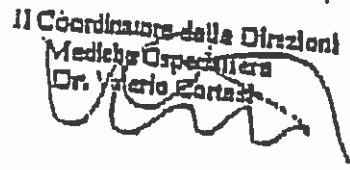 Il Coordinatore delle Direzioni
Mediche Ospedaliera
Dr. Valerio